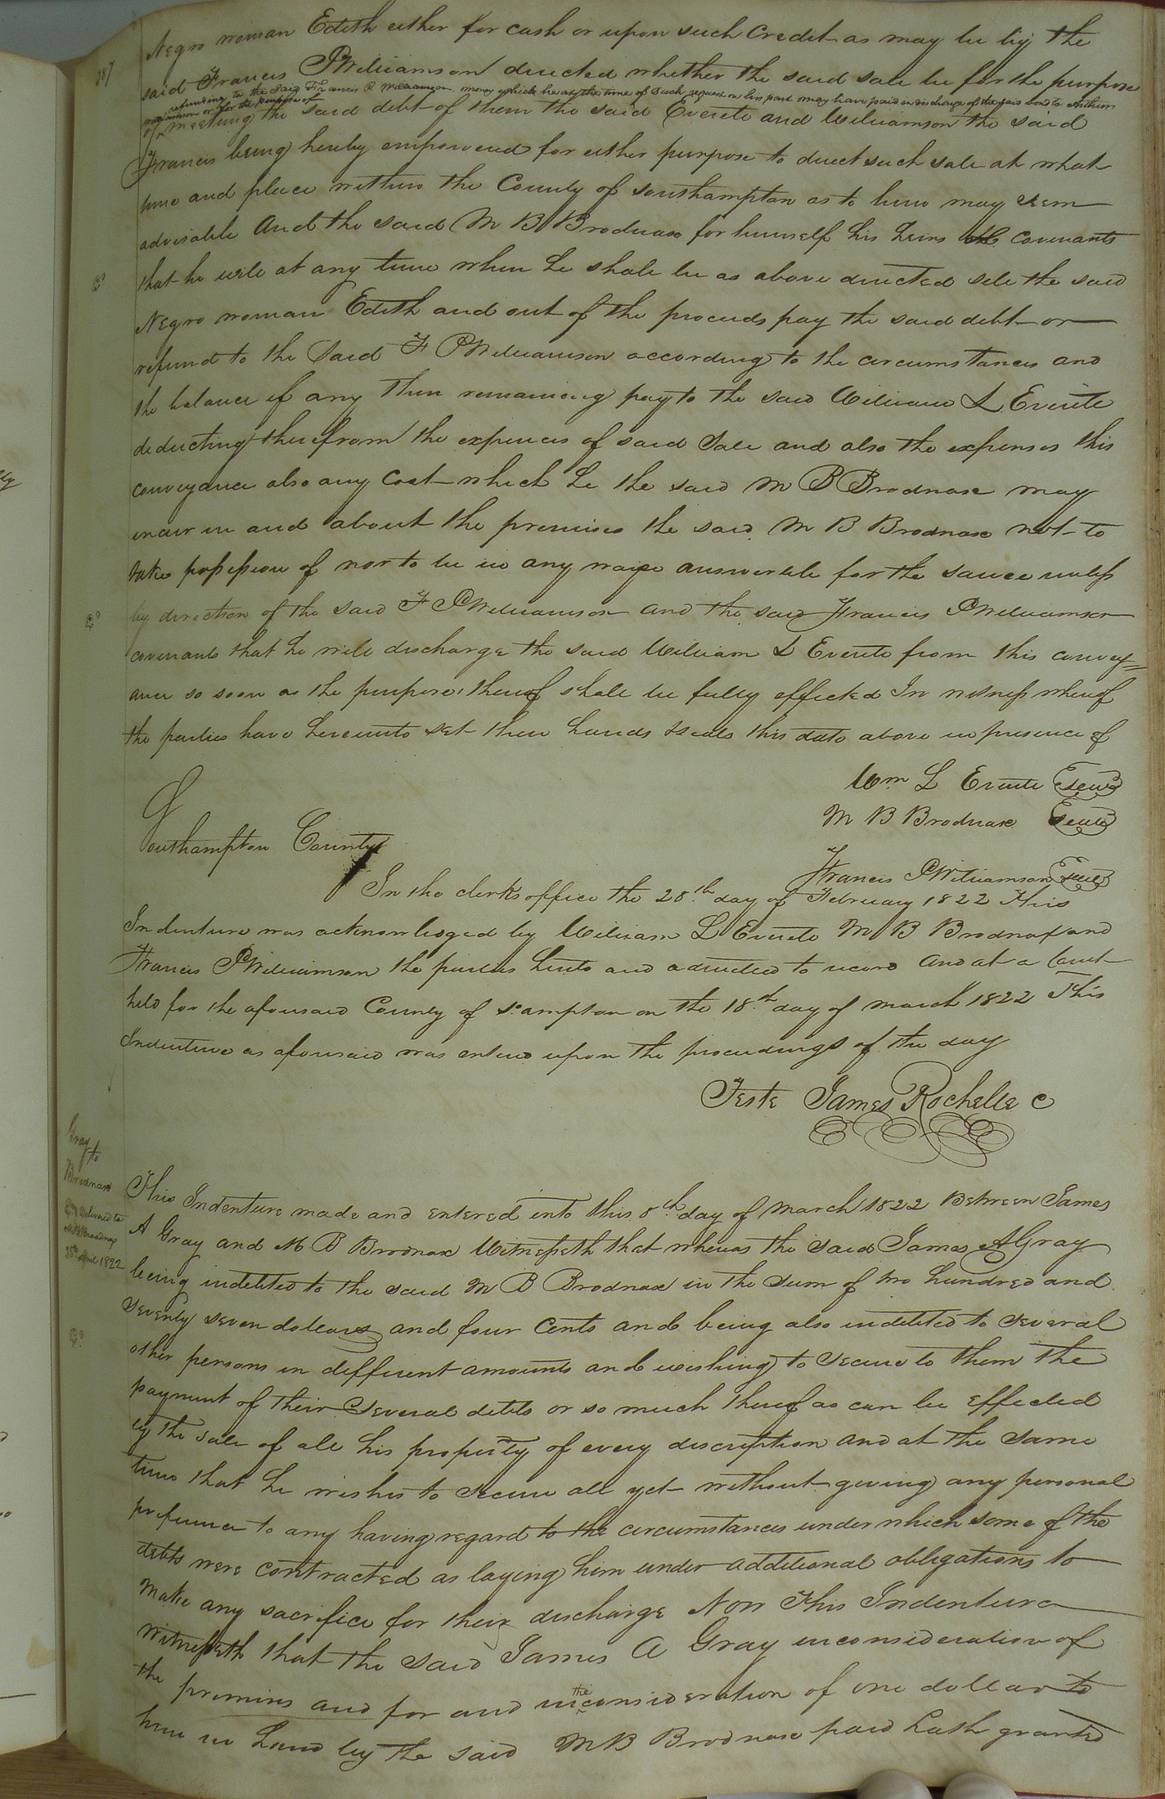 387
Negro woman Edith either for cash or upon such credit as may be by the
said Francis P Williamson directed whether the said sale be for the purpose
refunding to the said Francis P Williamson money which he at the time of such requisition on his part may have paid in discharge of the said
or for the purpose of
meeting the said debt of them the said Everite and Williamson the said
Francis being hereby empowered for either purpose to direct such sale at what
time and place within the County of Southampton as to him may seem
advisable And the said M B Brodnax for himself his heirs &c covenants
that he will at any time when he shall be as above directed sell the said
Negro woman Edith and out of the proceeds pay the said debt or
refund to the said F P Williamson according to the circumstances and
the balance if any then remaining pay to the said William L Everite
deducting therefrom the expences of said sale and also the expenses this
conveyance also any cost which he the said M B Brodnax may
incur in and about the premises the said M B Brodnax not to
take possession of nor to be in any wise answerable for the same unless
by direction of the said F P Williamson and the said Francis P Williamson
covenants that he will discharge the said William L Everite from this convey=
ance so soon as the purposes thereof shall be fully effected In witness whereof
the parties have hereunto set their hands & seals this date above in presence of
Wm L Everite Seal
M B Brodnax Seal
Francis P Williamson Seal
Southampton County
In the clerks office the 28th day of February 1822 This
Indenture was acknowledged by William L Everite M B Brodnax and
Francis P Williamson the parties hereto and admitted to record And at a Court
held for the aforesaid County of So ampton on the 18th day of March 1822 This
Indenture as aforesaid was entered upon the proceedings of the day
Teste James Rochelle C
Gray
to
Brodnax
delivered to
M B Brodnax
25th April 1822
This Indenture made and entered into this 8th day of March 1822 Between James
A Gray and M B Brodnax Witnesseth that whereas the said James A Gray
being indebted to the said M B Brodnax in the sum of two hundred and
seventy seven dollars and four Cents and being also indebted to several
other persons in different amounts and wishing to secure to them the
payment of their several debts or so much thereof as can be effected
by the sale of all his property of every discription and at the same
time that he wishes to secure all yet without giving any personal
preference to any having regard to the circumstances under which some of the
debts were contracted as laying him under additional obligations to
make any sacrifice for their discharge Now This Indenture
witnesseth that the said James A Gray inconsideration of
the premises and for and in the consideration of one dollar to
him in hand by the said M B Brodnax paid hath granted